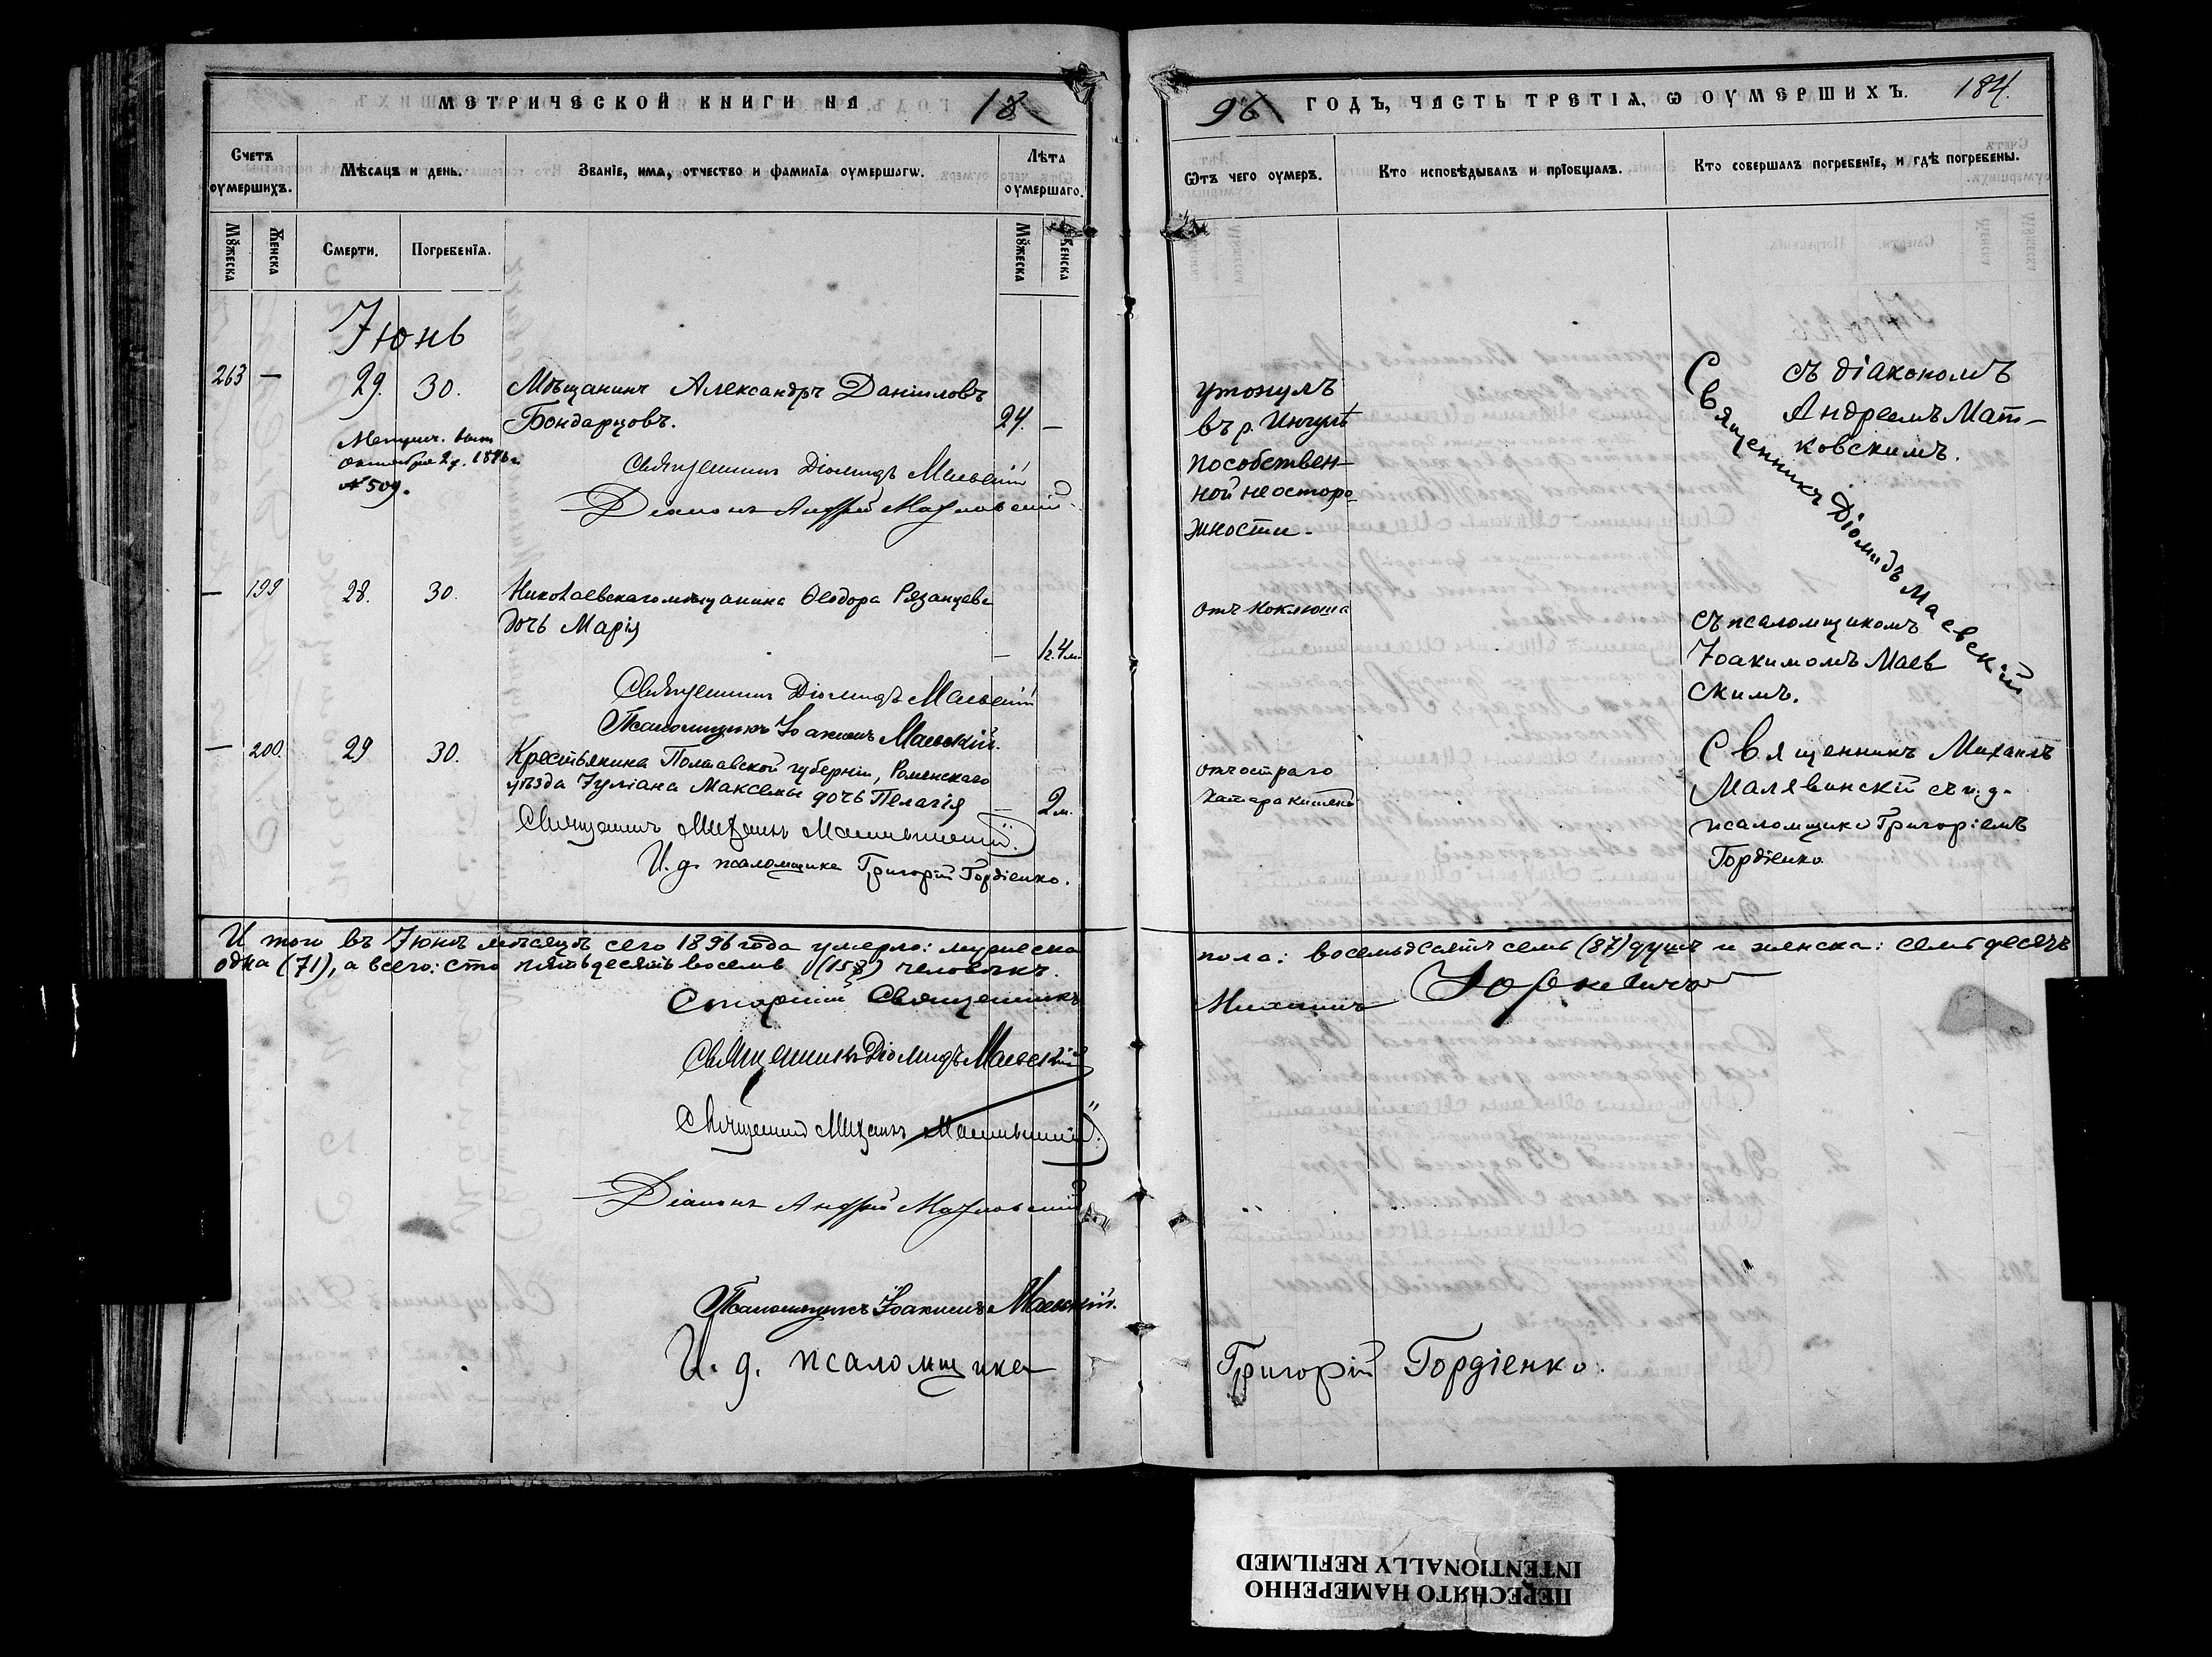 МЕТРИЧЕСКОЙ КНИГИ НА 18
96 ГОДЪ, ЧАСТЬ ТРЕТІѦ, Ѡ ОУМЕРШИХЪ. 184.
Счетъ оумершихъ.
Мѣсяцъ и день.
Званіе, имя, отчество и фамилія оумершагѡ.
Лѣта оумершаго.
Ѿтъ чего оумеръ.
Кто исповѣдывалъ и пріобщалъ.
Кто совершалъ погребеніе, и гдѣ погребены.
Мꙋжеска
Женска
Смерти.
Погребенія.
Мꙋжеска
Женска
Іюнь
263 — 29. 30. Мѣщанинъ Александръ Даніиловъ
Бондарцовъ. 24. —
октября 2 д. 1896 г.
№ 509.
Священникъ Діомидъ Маевскій
Діаконъ Андрей Матковскій
утонулъ
въ р. Ингулѣ
по собствен-
ной неосторо-
жности.
Священникъ Діомидъ Маевскій
съ діакономъ
Андреемъ Мат-
ковскимъ.
— 199 28. 30. Николаевскаго мѣщанина Ѳеодора Рязанцева
дочь Марія — 1 г. 4 м.
Священникъ Діомидъ Маевскій
Псаломщикъ Іоакимъ Маевскій.
отъ коклюша
съ псаломщикомъ
Іоакимомъ Маев
скимъ.
— 200. 29 30. Крестьянина Полтавской губерніи, Роменскаго
уѣзда Іуліана Максемы дочь Пелагія — 2 м.
Священникъ Михаилъ Малявинскій.
И. д. псаломщика Григорій Гордіенко.
отъ остраго
катара кишекъ
Священникъ Михаилъ
Малявинскій съ и. д.
псаломщика Григоріемъ
Гордіенко
Итого въ Іюнѣ мѣсяцѣ сего 1896 года умерло: мужеска пола: восемьдесятъ семь (87) душъ и женска: семьдесятъ
одна (71), а всего: сто пятьдесятъ восемь (158) человѣкъ.
Старшій Священникъ Михаилъ Юркевичъ
Священникъ Діомидъ Маевскій
Священникъ Михаилъ Малявинскій.
Діаконъ Андрей Матковскій
Псаломщикъ Іоакимъ Маевскій.
И. д. псаломщика Григорій Гордіенко.
ПЕРЕСНЯТО НАМЕРЕННО
INTENTIONALLY REFILMED